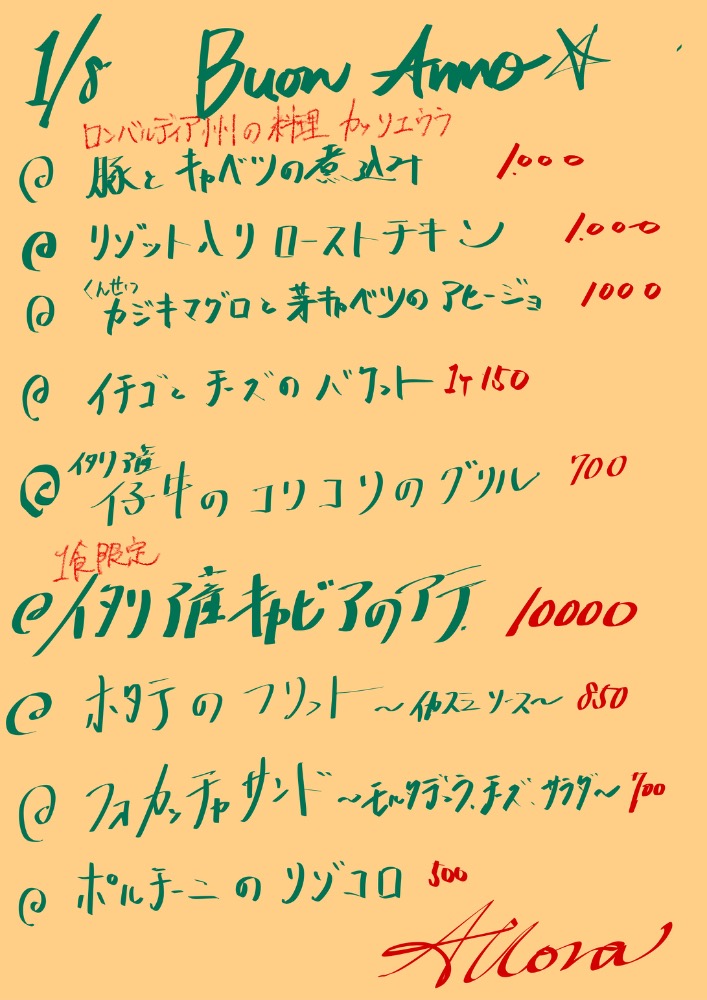 1/8 Buon Anno☆
ロンバルディア州の料理 カッソエウラ
@ 豚とキャベツの煮込み 1.000
@ リゾット入りローストチキン 1.000
くんせい
@ カジキマグロと芽キャベツのアヒージョ 1000
@ イチゴとチーズのバケット 1ケ150
イタリア産
@ 仔牛のコリコリのグリル 700
1食限定
@ イタリア産キャビアのアテ 10000
@ ホタテのフリット ～イカスミソース～ 850
@ フォカッチャサンド ～モルタデッラ、チーズ、サラダ～ 700
@ ポルチーニのリゾコロ 500
Allora